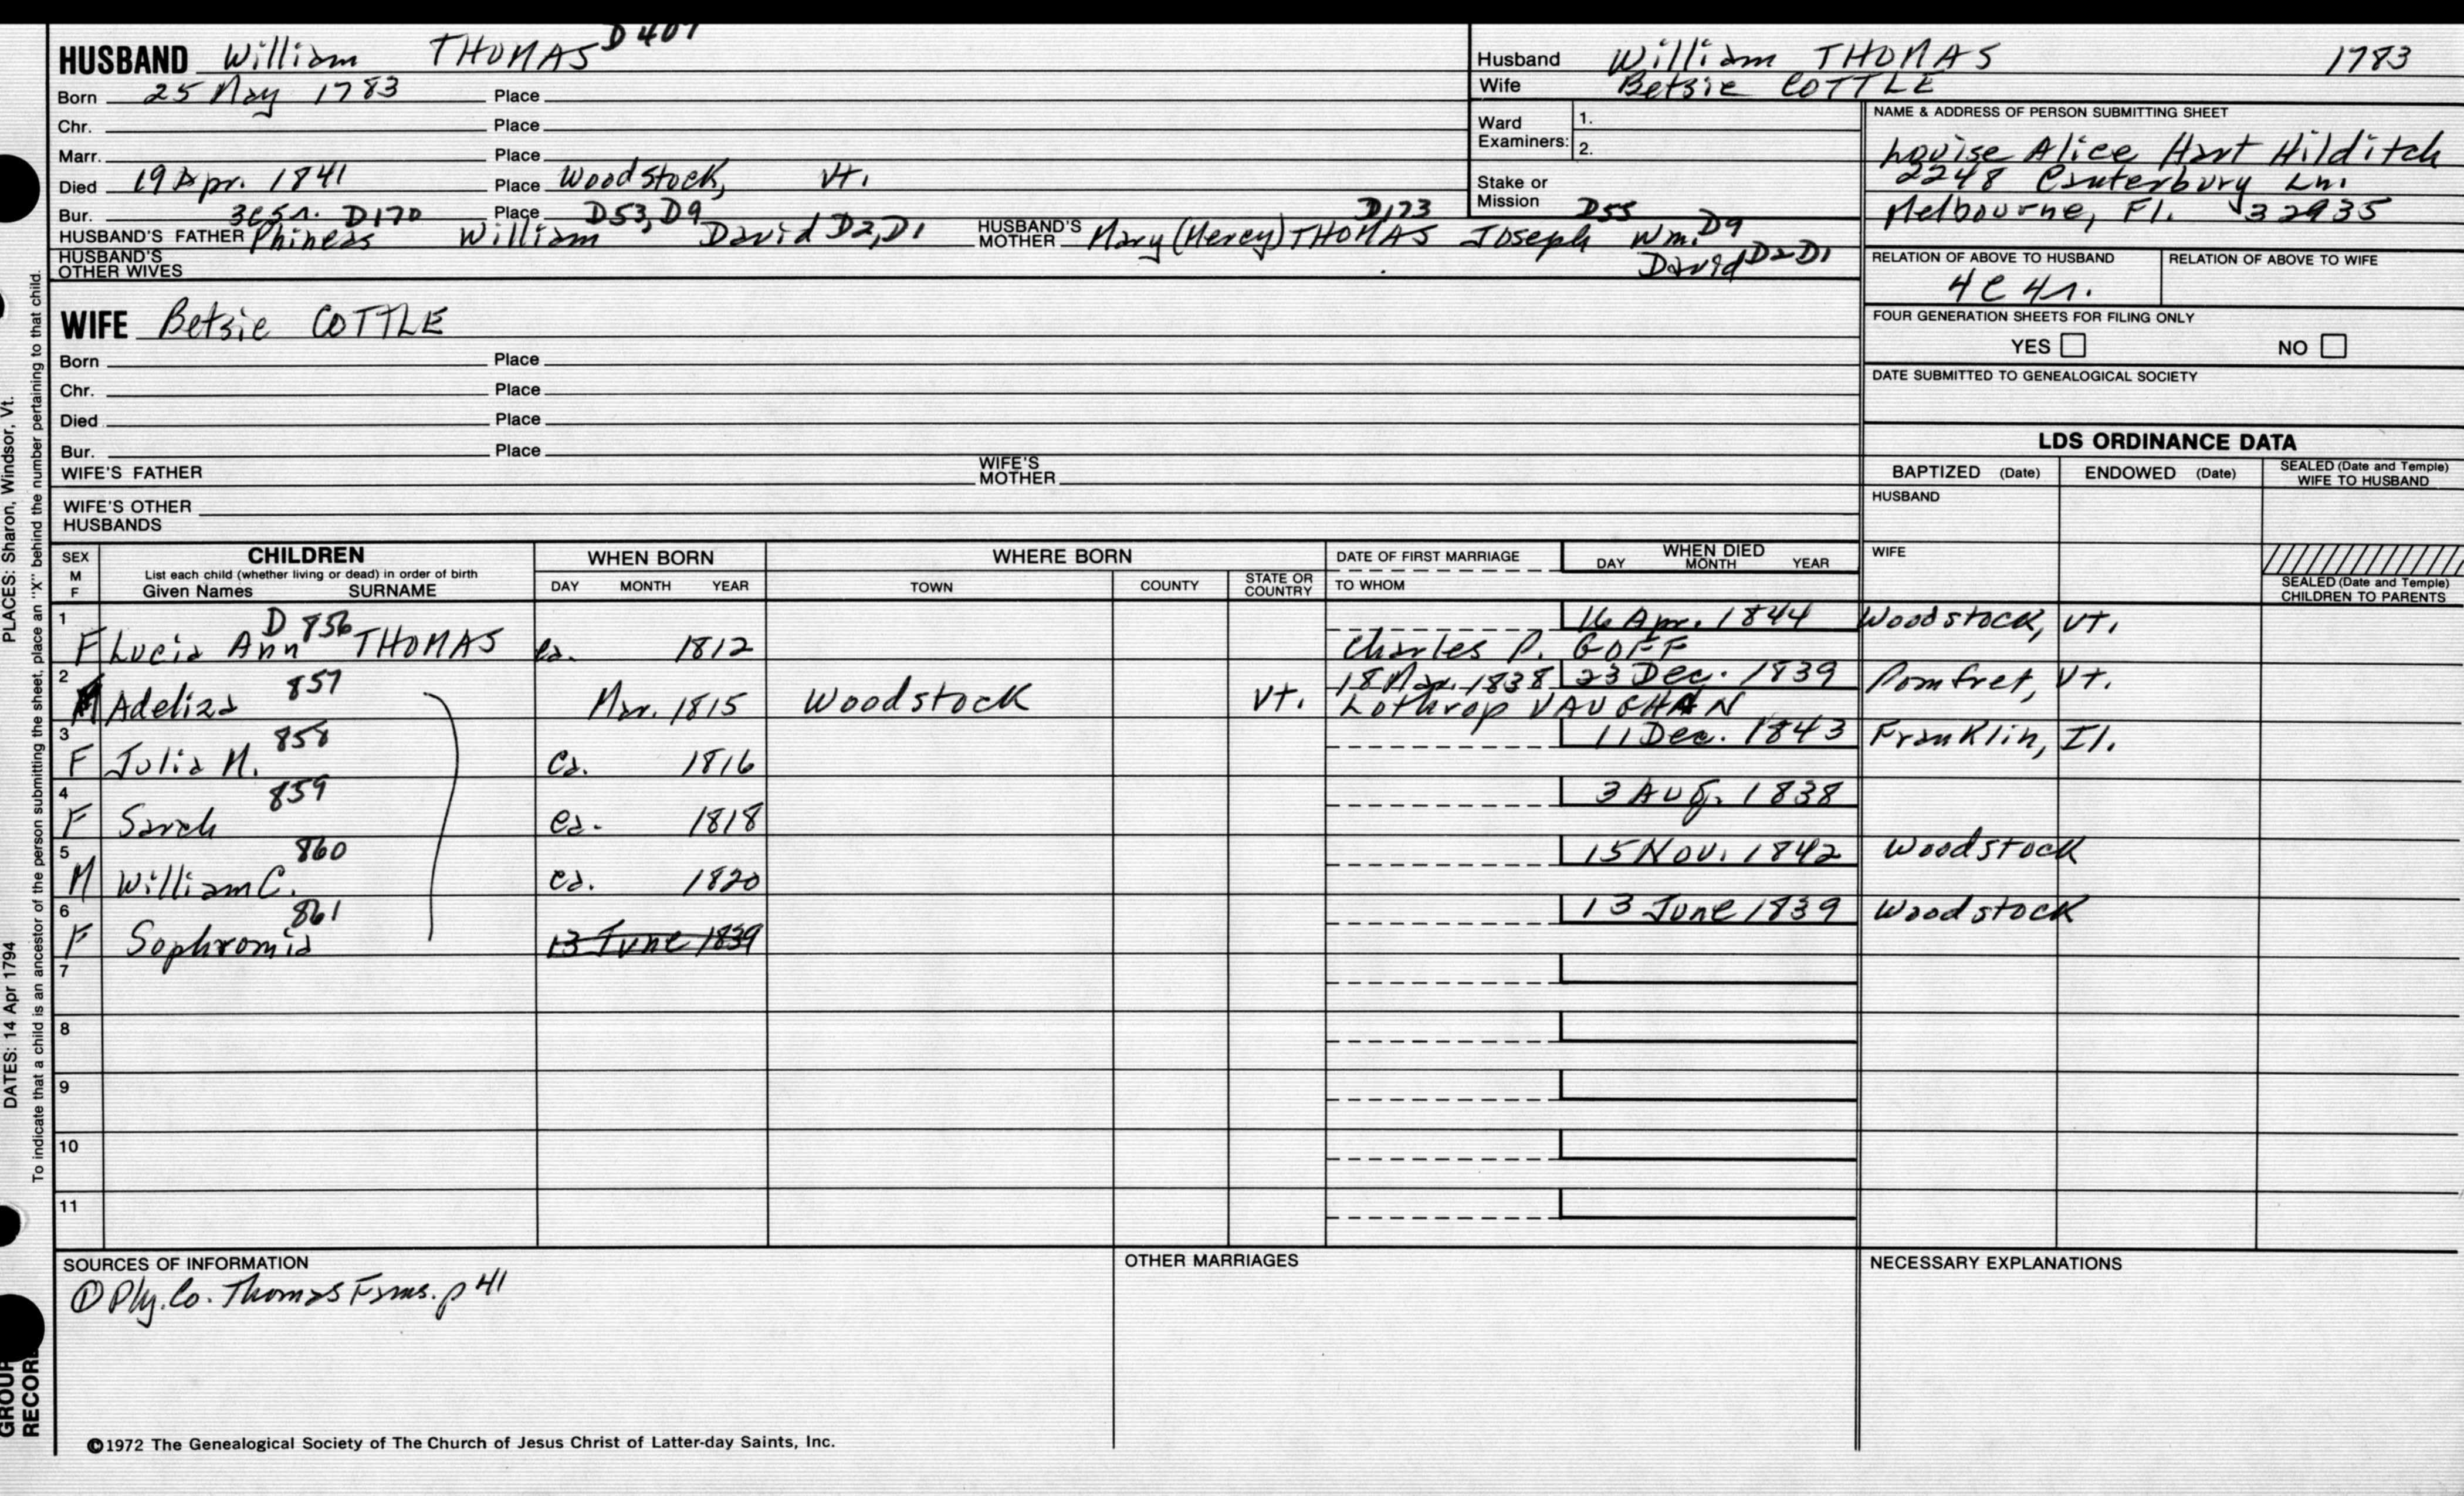 HUSBAND William THOMAS D407
Born 25 May 1783 Place
Chr. Place
Marr. Place
Died 19 Apr. 1841 Place Woodstock, Vt.
Bur. 3C5r. D170 Place D53, D9 D173 D55 D9
HUSBAND'S FATHER Phineas William David D2, D1 HUSBAND'S MOTHER Mary (Mercy) THOMAS Joseph Wm.
HUSBAND'S OTHER WIVES David D2 D1
Husband William THOMAS 1783
Wife Betsie COTTLE
Ward Examiners: 1. 2.
Stake or Mission
NAME & ADDRESS OF PERSON SUBMITTING SHEET
Louise Alice Hart Hilditch
2248 Canterbury Ln.
Melbourne, Fl. 32935
RELATION OF ABOVE TO HUSBAND RELATION OF ABOVE TO WIFE
4C4r.
FOUR GENERATION SHEETS FOR FILING ONLY
YES NO
DATE SUBMITTED TO GENEALOGICAL SOCIETY
WIFE Betsie COTTLE
Born Place
Chr. Place
Died Place
Bur. Place
WIFE'S FATHER WIFE'S MOTHER
WIFE'S OTHER HUSBANDS
LDS ORDINANCE DATA
BAPTIZED (Date) ENDOWED (Date) SEALED (Date and Temple) WIFE TO HUSBAND
HUSBAND
WIFE
SEALED (Date and Temple) CHILDREN TO PARENTS
SEX M F
CHILDREN
List each child (whether living or dead) in order of birth
Given Names SURNAME
WHEN BORN
DAY MONTH YEAR
WHERE BORN
TOWN COUNTY STATE OR COUNTRY
DATE OF FIRST MARRIAGE
TO WHOM
WHEN DIED
DAY MONTH YEAR
1 D 856 16 Apr. 1844 Woodstock, Vt.
F Lucia Ann THOMAS ca. 1812 Charles P. GOFF
2 857 18 Mar. 1838 23 Dec. 1839 Pomfret, Vt.
Adeliza Mar. 1815 Woodstock Vt. Lothrop VAUGHAN
3 858 11 Dec. 1843 Franklin, Il.
F Julia M. ca. 1816
4 859 3 Aug. 1838
F Sarah ca. 1818
5 860 15 Nov. 1842 Woodstock
M William C. ca. 1820
6 861 13 June 1839 Woodstock
F Sophromia 13 June 1839
7
8
9
10
11
SOURCES OF INFORMATION
① Ply. Co. Thomas Fams. p 41
OTHER MARRIAGES
NECESSARY EXPLANATIONS
©1972 The Genealogical Society of The Church of Jesus Christ of Latter-day Saints, Inc.
PLACES: Sharon, Windsor, Vt.
DATES: 14 Apr 1794
To indicate that a child is an ancestor of the person submitting the sheet, place an "X" behind the number pertaining to that child.
GROUP
RECORD